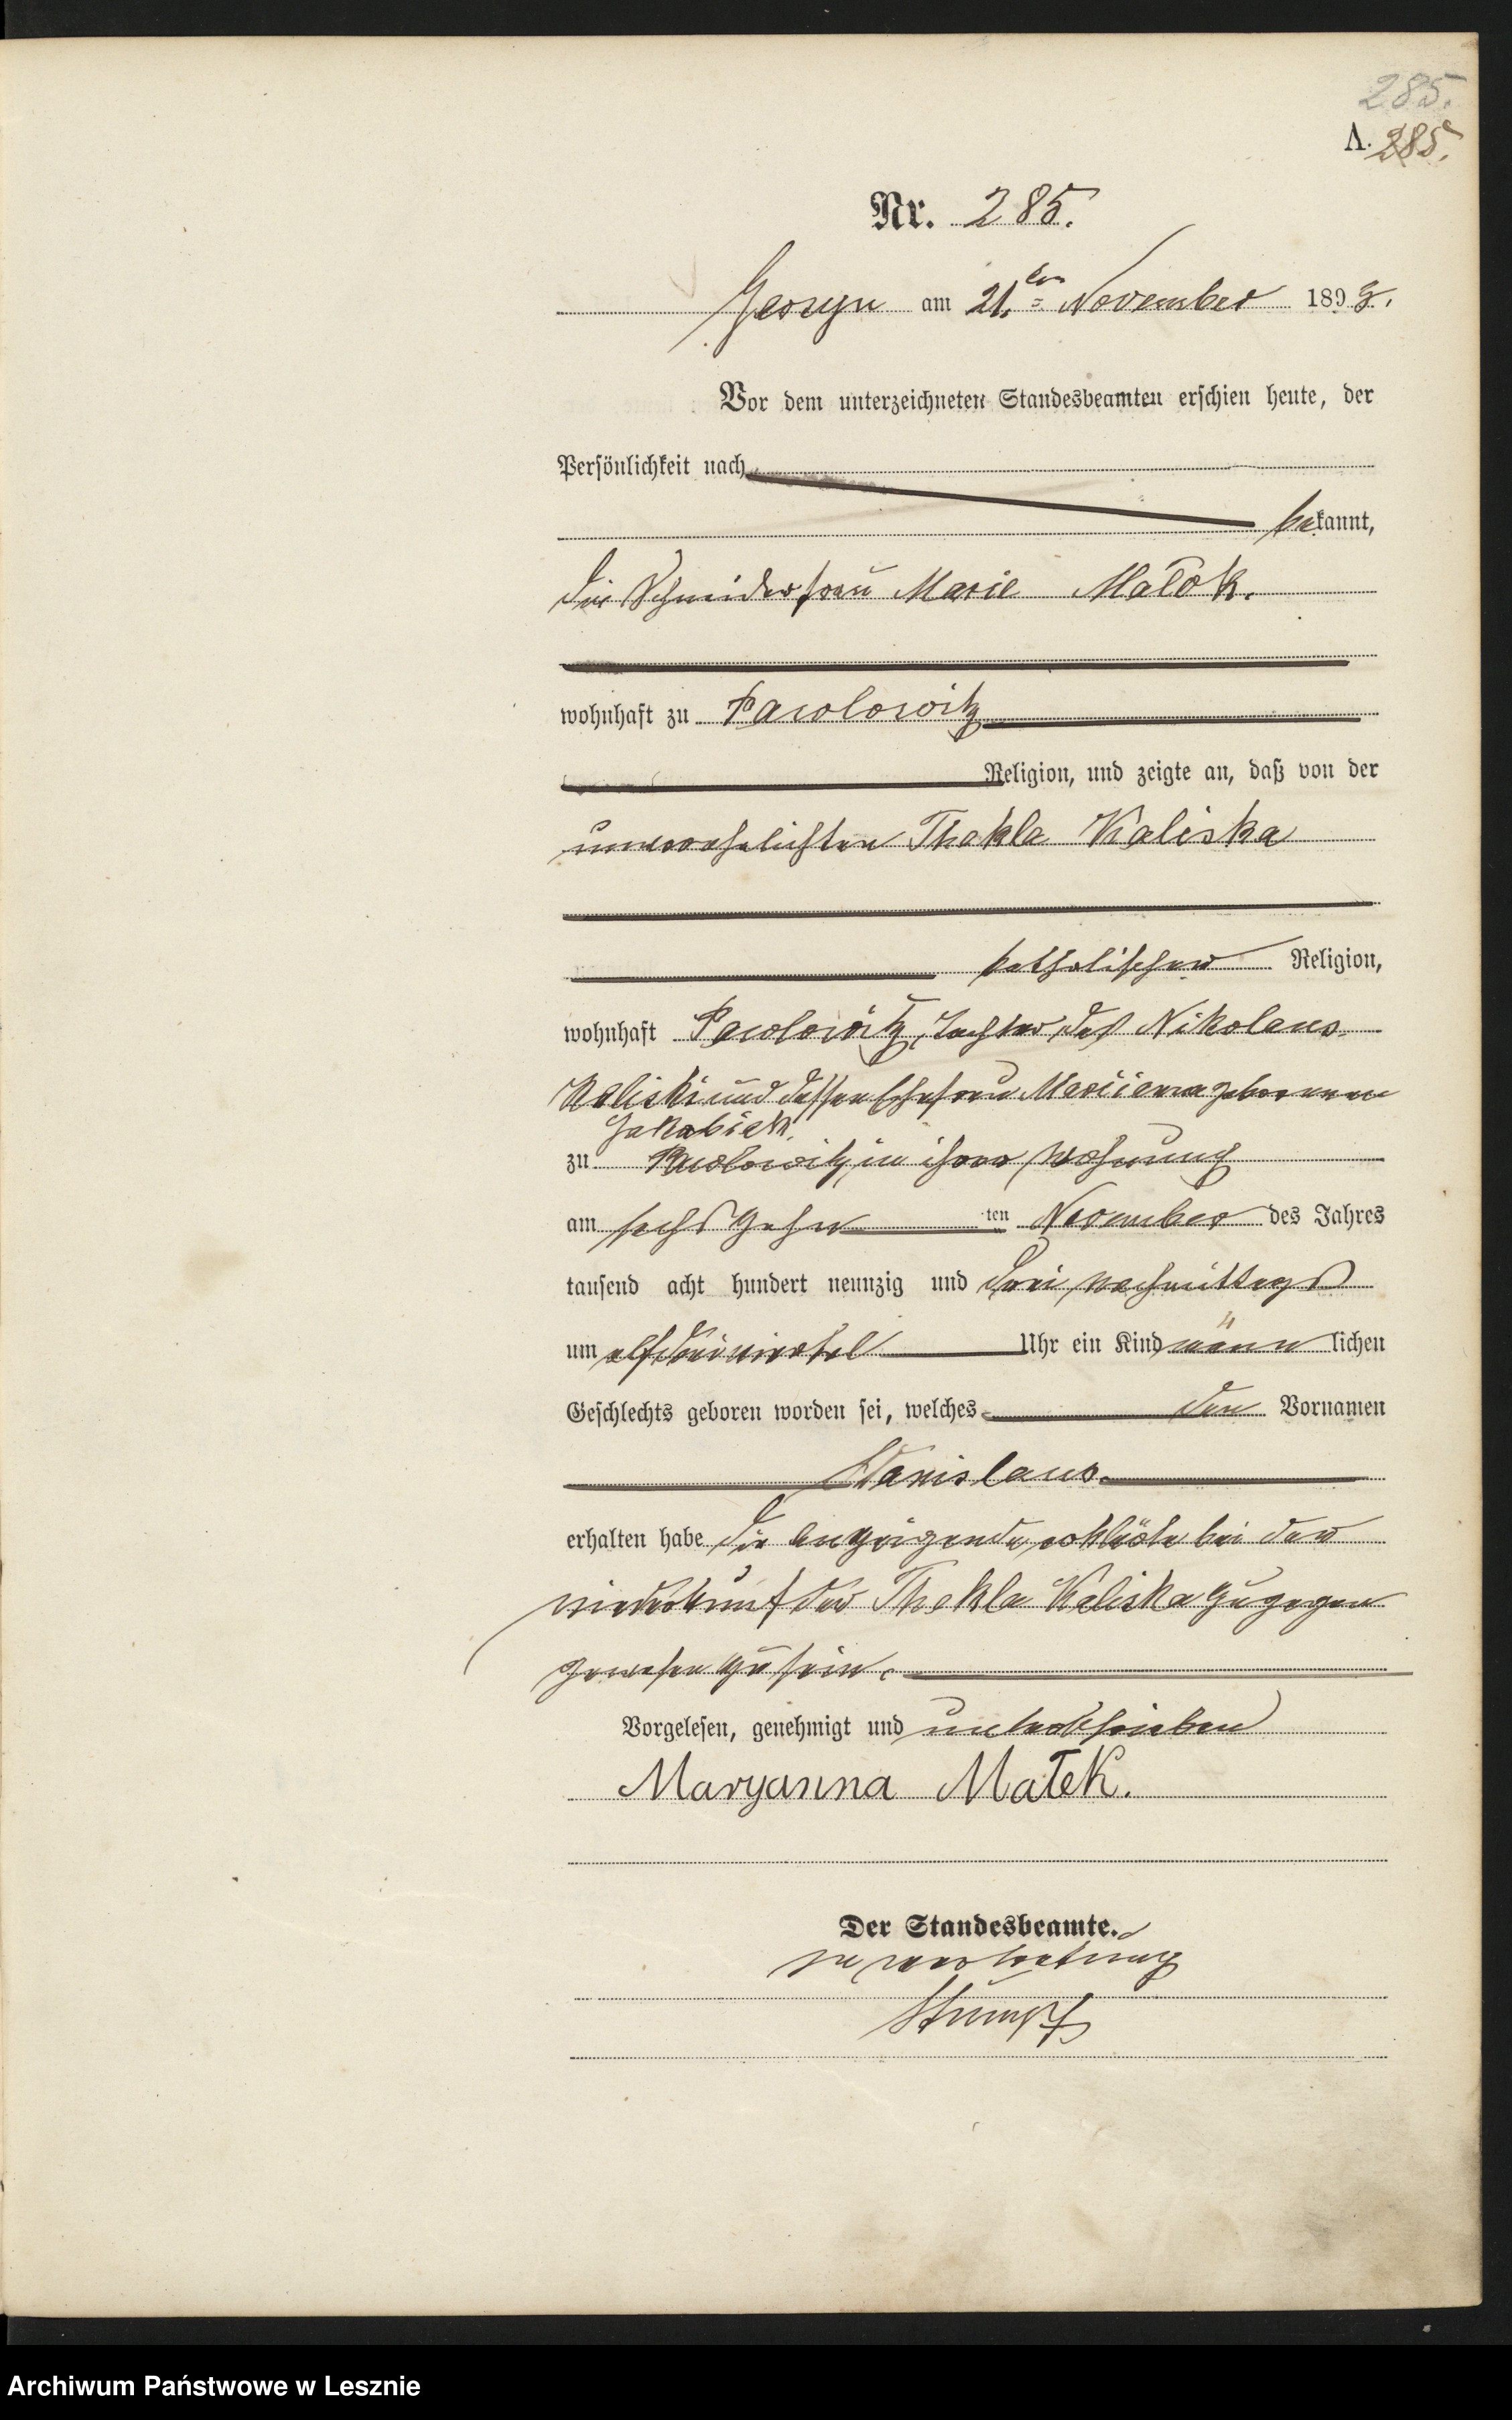 285.
A. 285.
Nr. 285.
am 21.ten November 1893.
Vor dem unterzeichneten Standesbeamten erschien heute, der
Persönlichkeit nach
bekannt,
die Schneiderfrau Marie Małek.
wohnhaft zu Pawlowitz
Religion, und zeigte an, daß von der
unverehelichten Thekla Kaliska
katholischer Religion,
wohnhaft Pawlowitz, Tochter des Nikolaus
Kaliski und dessen Ehefrau Marianna geborenen
Jakubiak
zu Pawlowitz, in ihrer Wohnung
am sechszehn ten November des Jahres
tausend acht hundert neunzig und drei nachmittags
um elfdreiviertel Uhr ein Kind männlichen
Geschlechts geboren worden sei, welches den Vornamen
Stanislaus
erhalten habe die Anzeigende erklärte bei der
Niederkunft der Thekla Kaliska zugegen
gewesen zu sein.
Vorgelesen, genehmigt und unterschrieben
Maryanna Małek.
Der Standesbeamte.
In Vertretung
Stumpf
Archiwum Państwowe w Lesznie